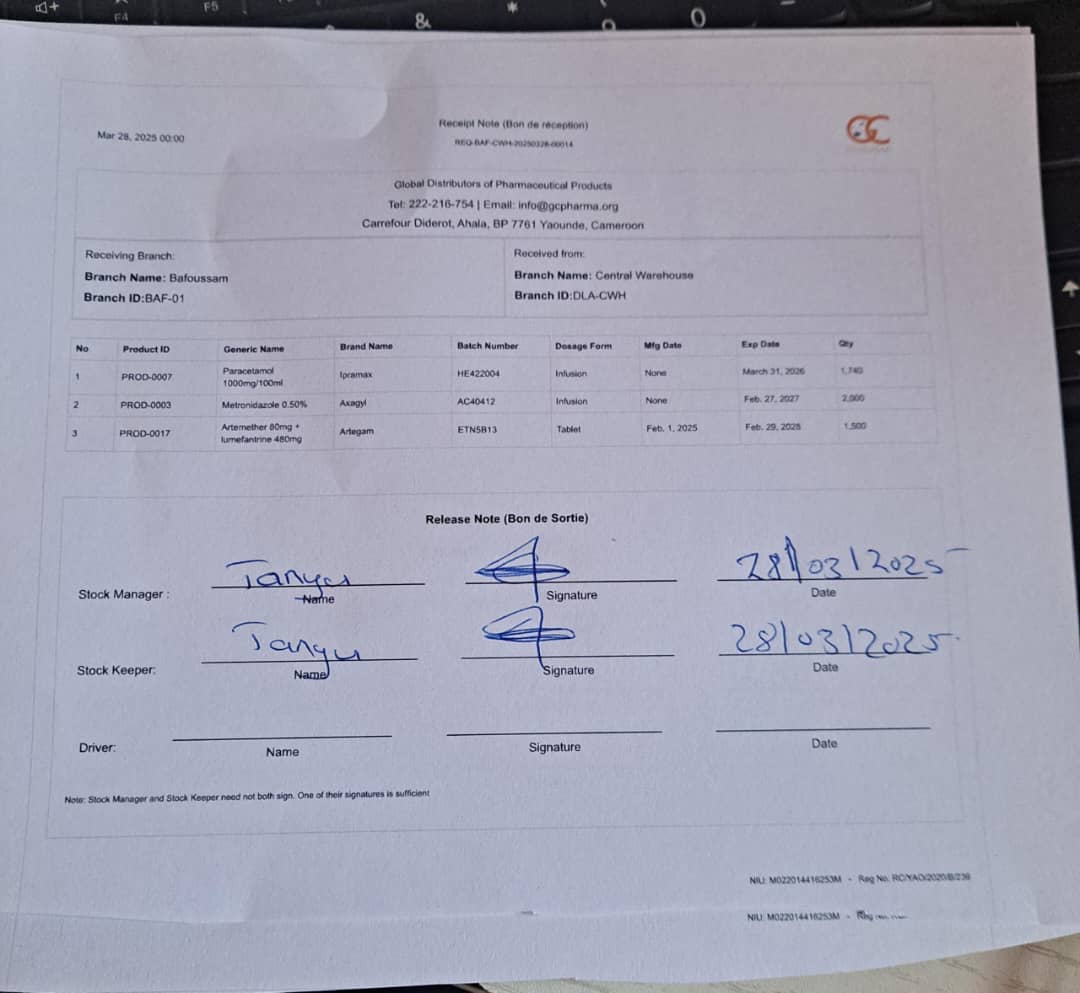 F4
F5
&
*
Mar 28, 2025 00:00
Receipt Note (Bon de réception)
REQ-BAF-CWH-20250328-00014
GC
Global Distributors of Pharmaceutical Products
Tel: 222-216-754 | Email: info@gcpharma.org
Carrefour Diderot, Ahala, BP 7761 Yaounde, Cameroon
Receiving Branch:
Branch Name: Bafoussam
Branch ID:BAF-01
Received from:
Branch Name: Central Warehouse
Branch ID:DLA-CWH
No Product ID Generic Name Brand Name Batch Number Dosage Form Mfg Date Exp Date Qty
1 PROD-0007 Paracetamol 1000mg/100ml Ipramax HE422004 Infusion None March 31, 2026 1,740
2 PROD-0003 Metronidazole 0.50% Axagyl AC40412 Infusion None Feb. 27, 2027 2,000
3 PROD-0017 Artemether 80mg + lumefantrine 480mg Artegam ETN5B13 Tablet Feb. 1, 2025 Feb. 29, 2028 1,500
Release Note (Bon de Sortie)
Stock Manager : Tanyu 28/03/2025
Name Signature Date
Stock Keeper: Tanyu 28/03/2025
Name Signature Date
Driver:
Name Signature Date
Note: Stock Manager and Stock Keeper need not both sign. One of their signatures is sufficient
NIU: M022014416253M - Reg No: RC/YAO/2020/B/239
NIU: M022014416253M - Reg